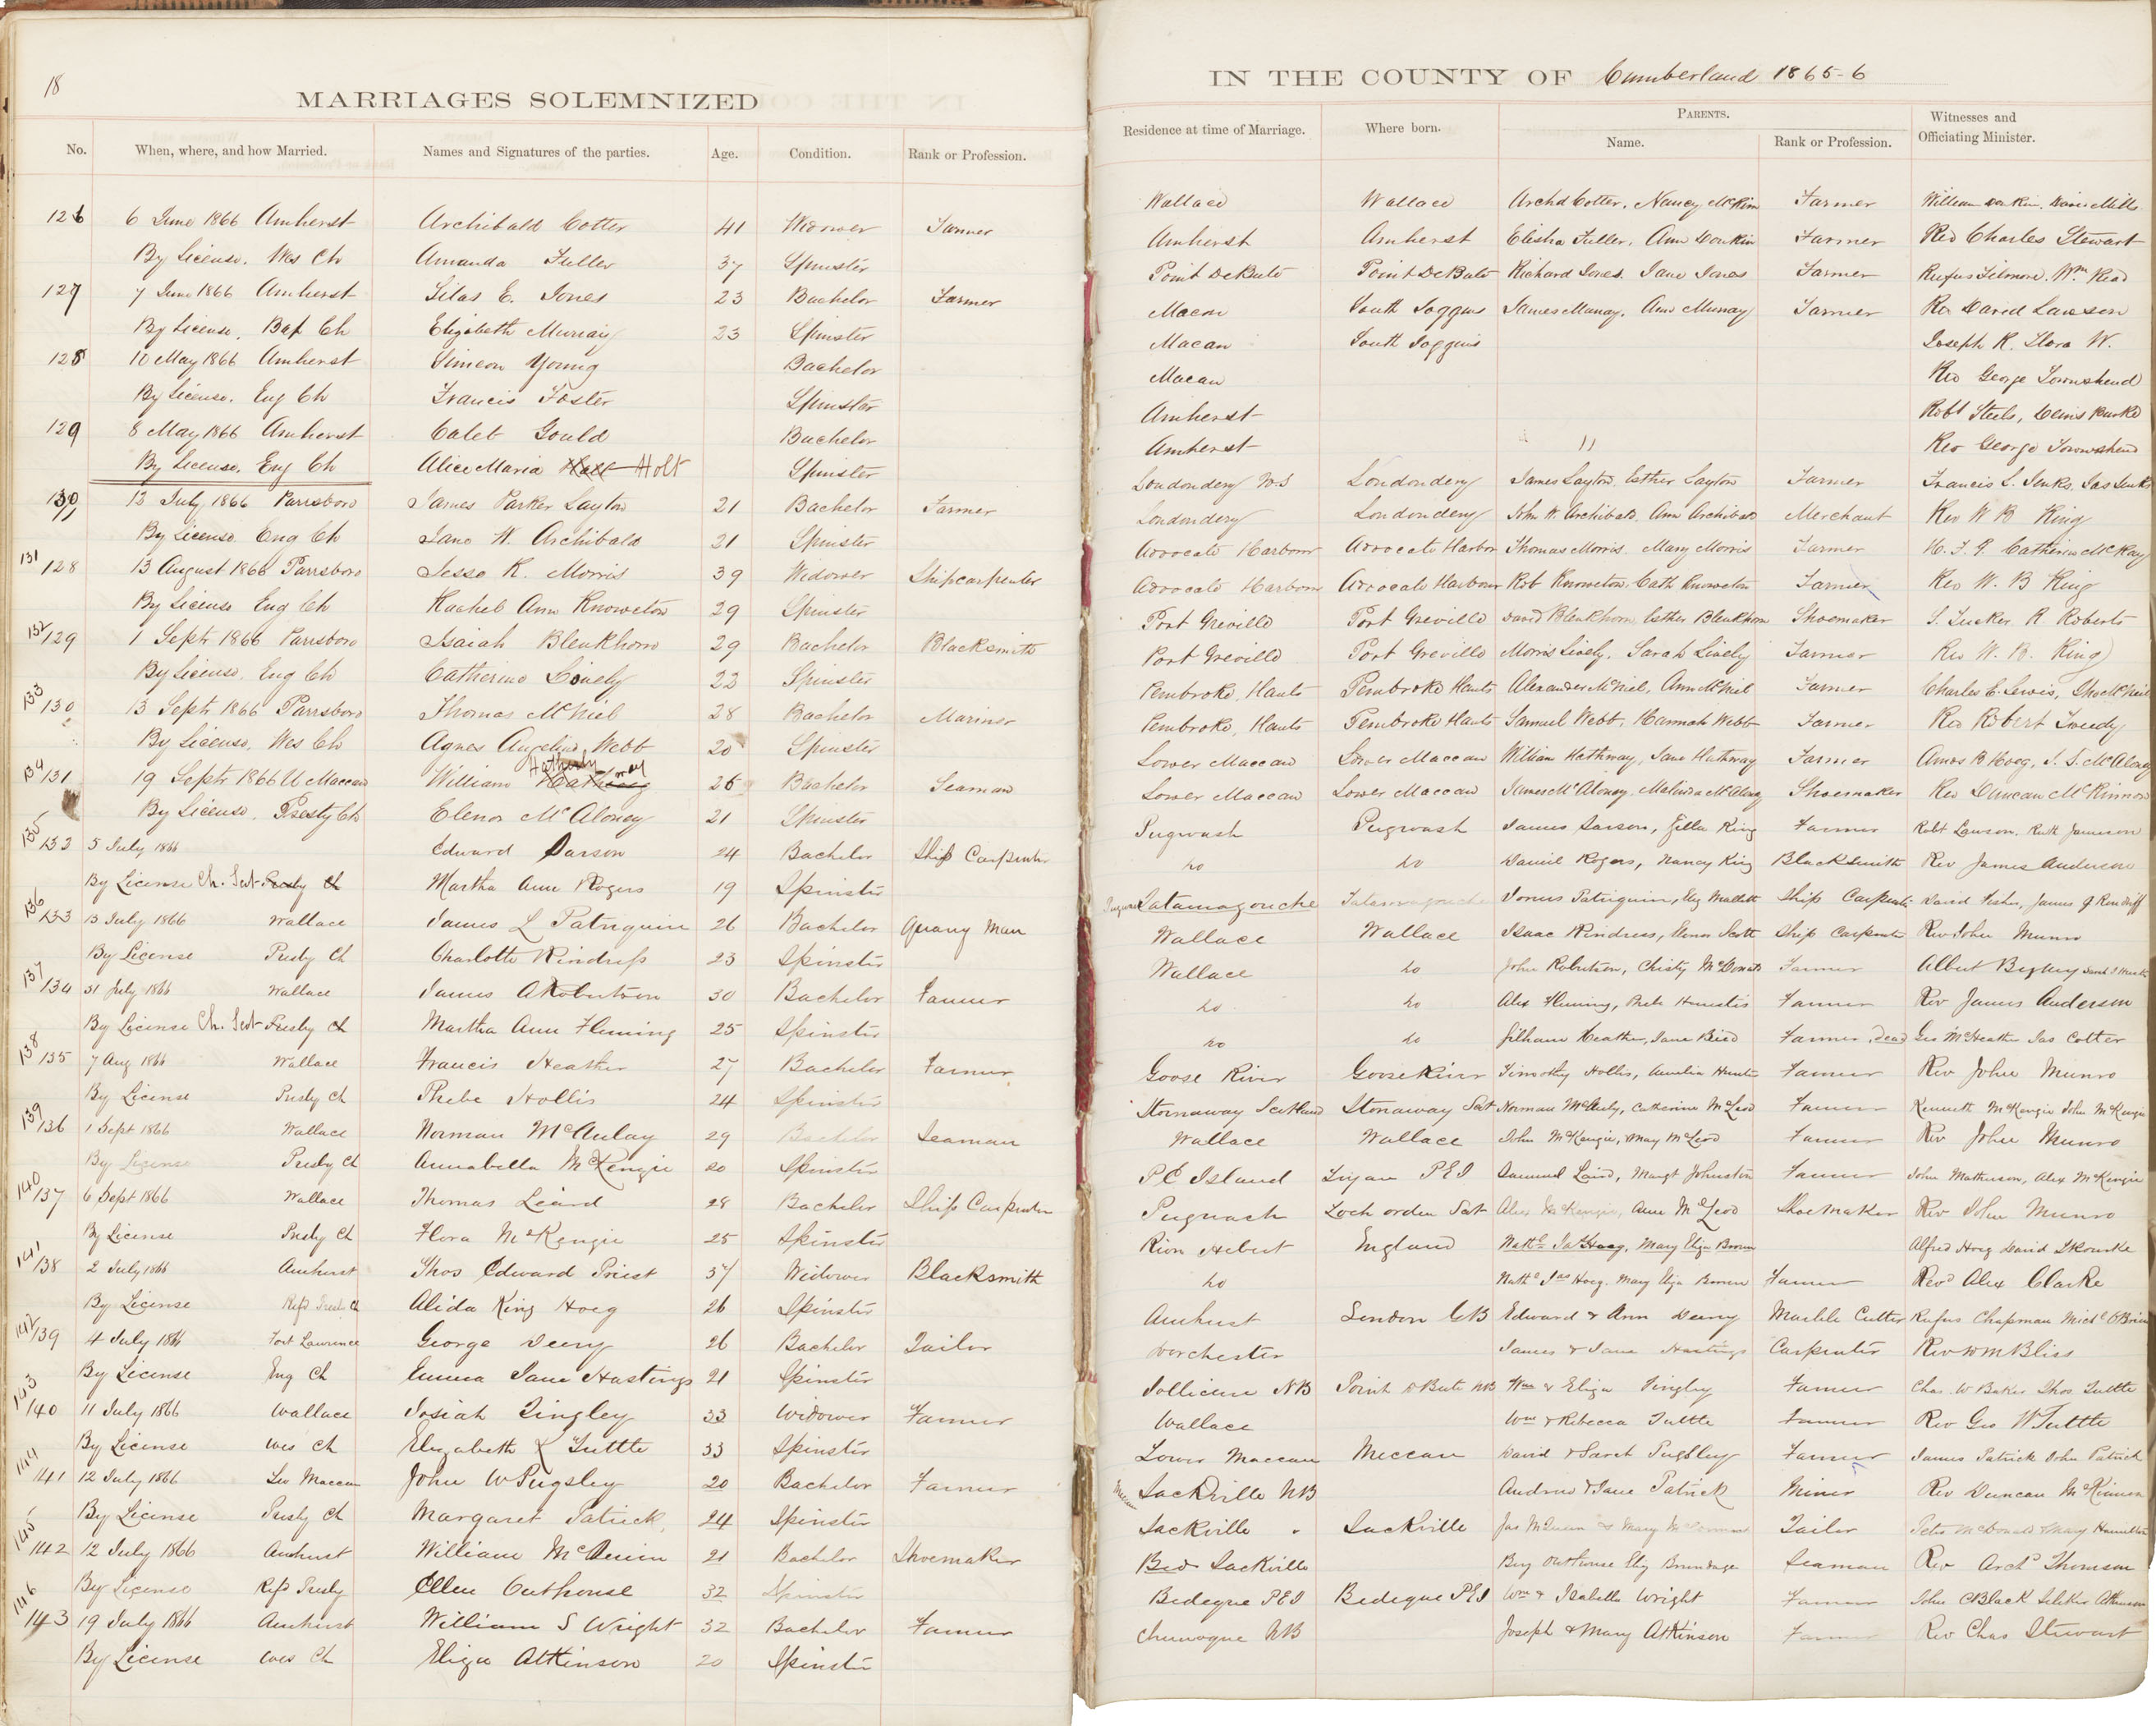 18
MARRIAGES SOLEMNIZED
No. When, where, and how Married. Names and Signatures of the parties. Age. Condition. Rank or Profession.
126 6 June 1866 Amherst Archibald Cotter 41 Widower Farmer
By License. Wes Ch Amanda Fuller 37 Spinster
127 7 June 1866 Amherst Silas E. Jones 23 Bachelor Farmer
By License, Bap Ch Elizabeth Murray 23 Spinster
128 10 May 1866 Amherst Simeon Young Bachelor
By License. Eng Ch Francis Foster Spinster
129 8 May 1866 Amherst Caleb Gould Bachelor
By License, Eng Ch Alice Maria Holt Spinster
130 13 July 1866 Parrsboro James Parker Layton 21 Bachelor Farmer
By License. Eng Ch Jane W. Archibald 21 Spinster
131/128 13 August 1866 Parrsboro Jesse K. Morris 39 Widower Shipcarpenter
By License Eng Ch Rachel Ann Knowlton 29 Spinster
132/129 1 Septr 1866 Parrsboro Isaiah Blenkhorn 29 Bachelor Blacksmith
By License. Eng Ch Catherine Lively 22 Spinster
133/130 13 Septr 1866 Parrsboro Thomas McNiel 28 Bachelor Mariner
By License, Wes Ch Agnes Angelina Webb 20 Spinster
134/131 19 Septr 1866 U Maccan William Hatherly 26 Bachelor Seaman
By License. Presty Ch Elenor McAloney 21 Spinster
135/132 5 July 1866 Edward Darson 24 Bachelor Ship Carpenter
By License Ch. Scot Presby Ch Martha Ann Rogers 19 Spinster
136/133 13 July 1866 Wallace James L Patriquin 26 Bachelor Quarry Man
By License Presby Ch Charlotte Kindress 23 Spinster
137/134 31 July 1866 Wallace James A Robertson 30 Bachelor Farmer
By License Ch. Scot Presby Ch Martha Ann Fleming 25 Spinster
138/135 7 Aug 1866 Wallace Francis Heather 27 Bachelor Farmer
By License Presby Ch Phebe Hollis 24 Spinster
139/136 1 Sept 1866 Wallace Norman McAulay 29 Bachelor Seaman
By License Presby Ch Annabella McKenzie 20 Spinster
140/137 6 Sept 1866 Wallace Thomas Leard 28 Bachelor Ship Carpenter
By License Presby Ch Flora McKenzie 25 Spinster
141/138 2 July 1866 Amherst Thos Edward Priest 37 Widower Blacksmith
By License Refd Presb Ch Alida King Hoeg 26 Spinster
142/139 4 July 1866 Fort Lawrence George Deery 26 Bachelor Tailor
By License Eng Ch Emma Jane Hastings 21 Spinster
143/140 11 July 1866 Wallace Josiah Tingley 33 Widower Farmer
By License Wes Ch Elizabeth K Tuttle 33 Spinster
144/141 12 July 1866 Lo Maccan John W Pugsley 20 Bachelor Farmer
By License Presby Ch Margaret Patrick 24 Spinster
145/142 12 July 1866 Amherst William McQuinn 21 Bachelor Shoemaker
By License Refd Presby Ellen Outhouse 32 Spinster
146/143 19 July 1866 Amherst William S Wright 32 Bachelor Farmer
By License Wes Ch Eliza Atkinson 20 Spinster
IN THE COUNTY OF Cumberland 1865-6
Residence at time of Marriage. Where born. PARENTS. Name. Rank or Profession. Witnesses and Officiating Minister.
Wallace Wallace Archd Cotter, Nancy McKim Farmer William Donkin, Mills
Amherst Amherst Elisha Fuller, Ann Donkin Farmer Rev Charles Stewart
Point DeBute Point DeBute Richard Jones. Jane Jones Farmer Rufus Filmore. Wm Read
Macan South Joggins James Murray, Ann Murray Farmer Rev David Lawson
Macan South Joggins Joseph R. W.
Macan Rev George Townshend
Amherst Robt Steele, Denis Burke
Amherst 11 Rev George Townshend
Londondery NS Londondery James Layton. Esther Layton Farmer Francis L. Jenks, Jas Jenks
Londondery Londondery John W. Archibald. Ann Archibald Merchant Rev W B King
Advocate Harbour Advocate Harbor Thomas Morris. Mary Morris Farmer Catherine McKay
Advocate Harbour Advocate Harbour Rob Knowlton, Cath Knowlton Farmer Rev W. B King
Port Greville Port Greville David Blenkhorn, Esther Blenkhorn Shoemaker S. Tucker R Roberts
Port Greville Port Greville Morris Lively. Sarah Lively Farmer Rev W. B. King
Pembroke, Hants Pembroke Hants Alexander McNiel, Ann McNiel Farmer Charles E. Lewis, McNeil
Pembroke, Hants Pembroke Hants Samuel Webb, Hannah Webb Farmer Rev Robert Tweedy
Lower Maccan Lower Maccan William Hathway, Jane Hathway Farmer Amos B Hoeg, McAloney
Lower Maccan Lower Maccan James McAloney. Malinda McAloney Shoemaker Rev Duncan McKinnon
Pugwash Pugwash James Darson, Zilla King Farmer Robt Lawson. Ruth Jameson
do do Daniel Rogers, Nancy King Blacksmith Rev James Anderson
Tatamagouche Tatamagouche Jonas Patriquin, Eliz Mallett Ship Carpenter David Fisher, James
Wallace Wallace Isaac Kindress, Scott Ship Carpenter Rev John Munro
Wallace do John Robertson, Christy McDonald Farmer Albert Bigney
do do Alex Fleming, Farmer Rev James Anderson
do do Heather, Jane Farmer, dead Geo McHeather Jas Cotter
Goose River Goose River Timothy Hollis, Amelia Hunter Farmer Rev John Munro
Stornaway Scotland Stonaway Scot Norman McAuly, Catherine McLeod Farmer Kenneth McKenzie John McKenzie
Wallace Wallace John McKenzie, Mary McLeod Farmer Rev John Munro
P E Island P E I Samuel Laird, Margt Johnston Farmer John Matheson, Alex McKenzie
Pugwash Loch orden Scot Alex McKenzie, Ann McLeod Shoemaker Rev John Munro
River Hebert England Mary Eliza Brown Alfred Hoeg David
do Nathl Jas Hoeg. Mary Eliza Brown Farmer Revd Alex Clarke
Amherst London GB Edward & Ann Deery Marble Cutter Rufus Chapman Michl O'Brien
Dorchester James & Jane Hastings Carpenter Rev Wm Bliss
Jollicure NB Point D Bute NB Wm & Eliza Tingley Farmer Chas W Baker Thos Tuttle
Wallace Wm & Rebecca Tuttle Farmer Rev Geo W Tuttle
Lower Maccan Meccan David & Sarah Pugsley Farmer James Patrick John Patrick
Sackville NB Andrew & Jane Patrick Miner Rev Duncan McKinnon
Sackville " Sackville Jas McQuinn & Mary Tailor Peter McDonald & Mary Hamilton
Sackville Benj Outhouse Eliz Brundage Seaman Rev Archd Thomson
Bedeque PEI Bedeque PEI Wm & Isabella Wright Farmer John C Black Atkinson
Chemogue NB Joseph & Mary Atkinson Farmer Rev Chas Stewart